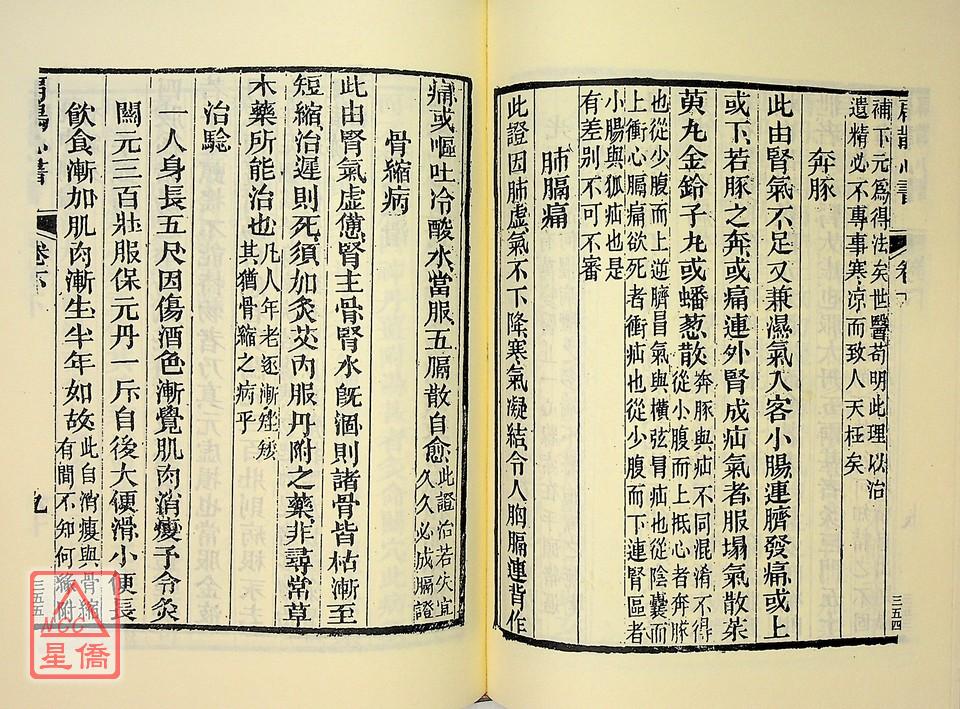 扁鵲心書
卷下
補下元爲得法矣世醫苟明此理以治
遺精必不專事寒涼而致人夭枉矣
奔豚
此由腎氣不足又兼濕氣入客小腸連臍發痛或上
或下若豚之奔或痛連外腎成疝氣者服塌氣散茱
萸丸金鈴子丸或蟠葱散奔豚與疝不同混淆不得
從小腹而上抵心者奔豚
也從少腹而上逆臍昌氣與橫弦胃疝也從陰囊而
上衝心膈痛欲死者衝疝也從少腹而下連腎區者
小腸與狐疝也是
有差别不可不審
肺膈痛
此證因肺虚氣不下降寒氣凝結令人胸膈連背作
三五四
痛或嘔吐冷酸水當服五膈散自愈此證治若失宜
久久必成膈證
骨縮病
此由腎氣虚憊腎主骨腎水既涸則諸骨皆枯漸至
短縮治遲則死須加灸艾内服丹附之藥非尋常草
木藥所能治也凡人年老逐漸矬矮
其猶骨縮之病乎
治驗
一人身長五尺因傷酒色漸覺肌肉消瘦予令灸
關元三百壯服保元丹一斤自後大便滑小便長
飲食漸加肌肉漸生半年如故此自消瘦與骨縮
有間不知何緣附
扁鵲心書
卷下
九
三五五
NCC
星僑